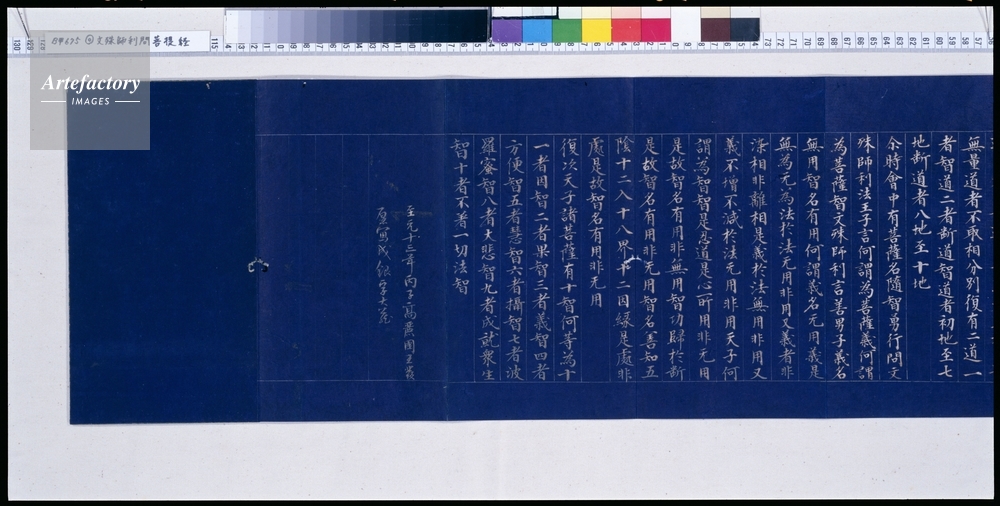 無量道者不取相分別復有二道一
者智道二者断道智道者初地至七
地断道者八地至十地
尒時會中有菩薩名隨智勇行問文
殊師利法王子言何謂為菩薩義何謂
為菩薩智文殊師利言善男子義名
無用智名有用何謂義名元用義是
無為元為法於法元用非用又義者非
湌相非離相是義於法無用非用又
義不增不減於法元用非用天子何
謂為智智是忘道是心所用非元用
是故智名有用非無用智功歸於断
是故智名有用非无用智名善知五
陰十二入十八界十二因緣是處非
處是故智名有用非无用
復次天子諸菩薩有十智何等為十
一者因智二者果智三者義智四者
方便智五者慧智六者攝智七者波
羅蜜智八者大悲智九者成就衆生
智十者不著一切法智
至元十三年丙子高麗國王發
願寫成銀字大藏
文殊師利問菩提経
Artefactory
IMAGES